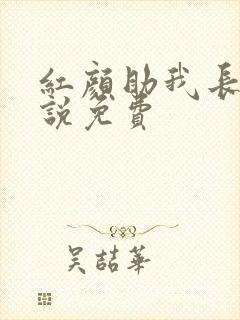 紅顏助我長
說免費
吳喆華